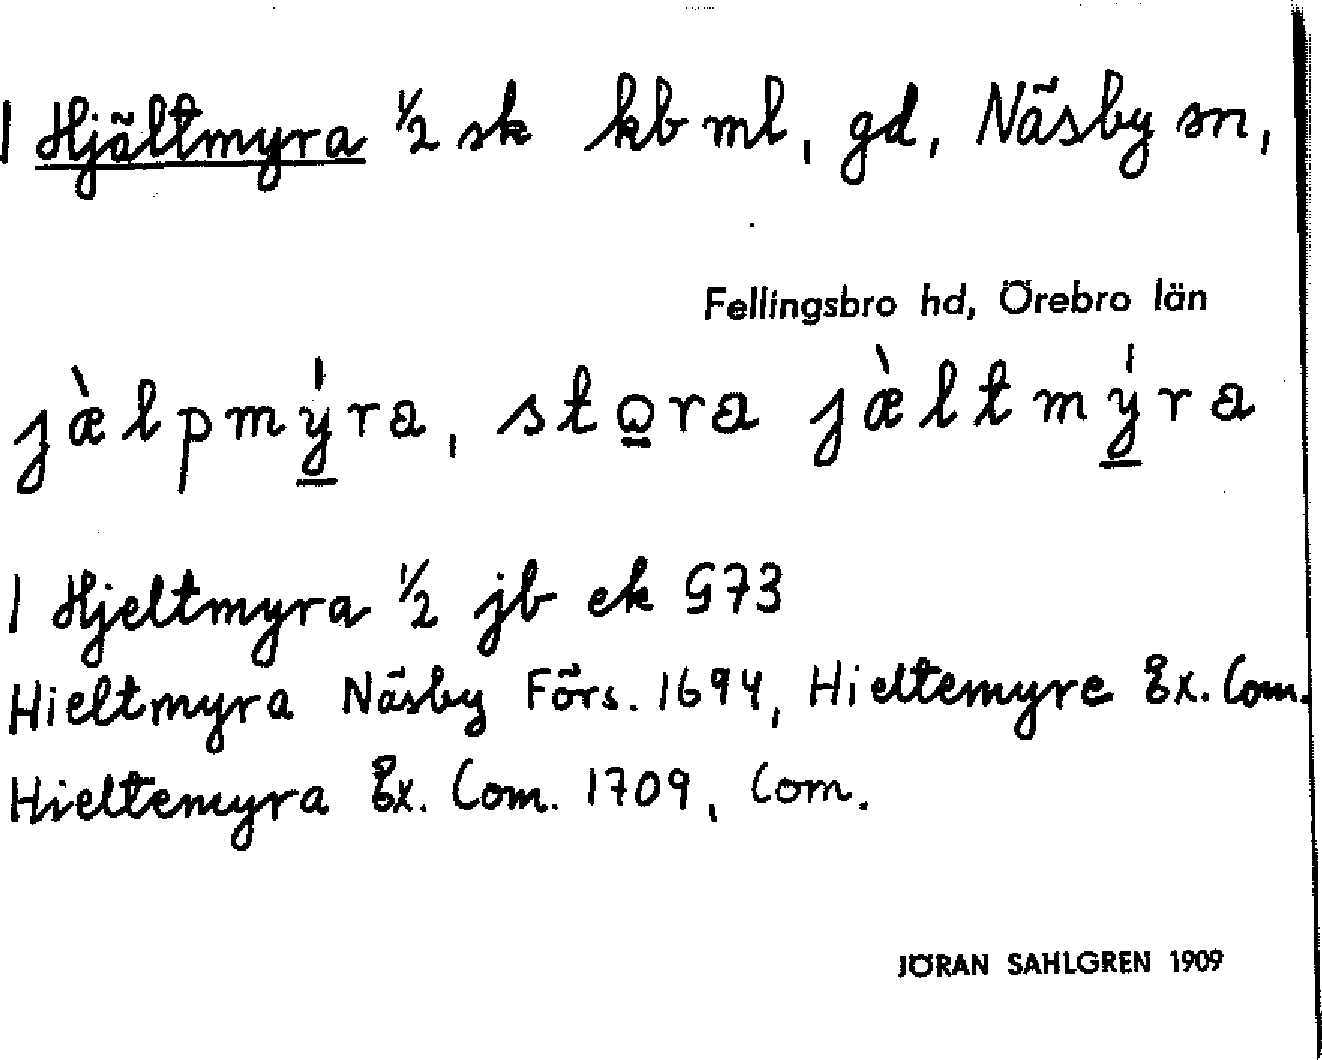 1 Hjältmyra ½ sk kb ml, gd, Näsby sn,
Fellingsbro hd, Örebro län
jæ̀lpmý̱ra, sto̱ra jæ̀ltmý̱ra
1 Hjeltmyra ½ jb ek G73
Hieltmyra Näsby Förs. 1694, Hieltemyre Ex. Com.
Hieltemyra Ex. Com. 1709, Com.
JÖRAN SAHLGREN 1909